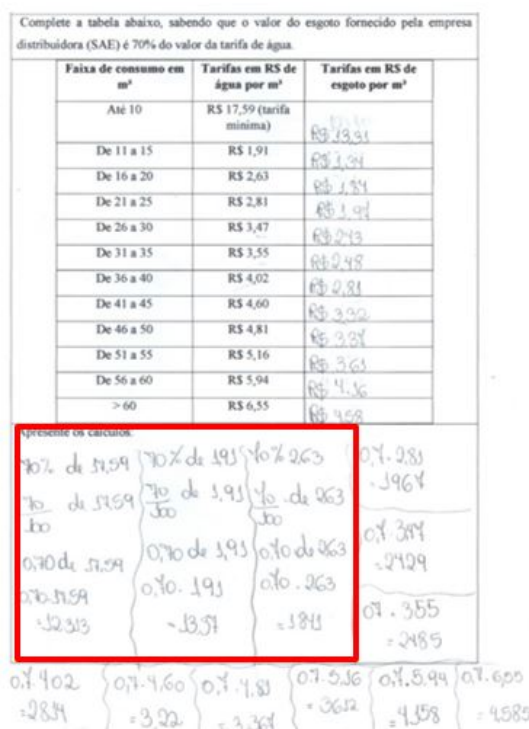 Complete a tabela abaixo, sabendo que o valor do esgoto fornecido pela empresa
distribuidora (SAE) é 70% do valor da tarifa de água.
Faixa de consumo em m³ Tarifas em R$ de água por m³ Tarifas em R$ de esgoto por m³
Até 10 R$ 17,59 (tarifa mínima) R$
De 11 a 15 R$ 1,91 R$ 1,34
De 16 a 20 R$ 2,63 R$ 1,84
De 21 a 25 R$ 2,81 R$ 1,97
De 26 a 30 R$ 3,47 R$ 2,43
De 31 a 35 R$ 3,55 R$ 2,48
De 36 a 40 R$ 4,02 R$ 2,81
De 41 a 45 R$ 4,60 R$
De 46 a 50 R$ 4,81 R$ 3.37
De 51 a 55 R$ 5,16 R$ 3.61
De 56 a 60 R$ 5,94 R$ 4.16
> 60 R$ 6,55 R$ 4,58
Apresente os cálculos.
70% de 17,59
70
100
de 17.59
0,70 de 17.59
0,70.17.59
=12.313
70% de 1,91
70
100
de 1,91
0,70 de 1,91
0,70. 191
=1337
70% 2,63
70
100
de 263
0,70 de 263
0,70 . 263
=1841
0,7. 2,81
=1967
0,7. 347
=2429
07. 355
=2485
0,7.402
=2814
0,7.4,60
=3,22
0,7.4,81
=3.367
0.7.5.16
=3612
0,7.5.94
=4,158
0,7.6,55
=4585